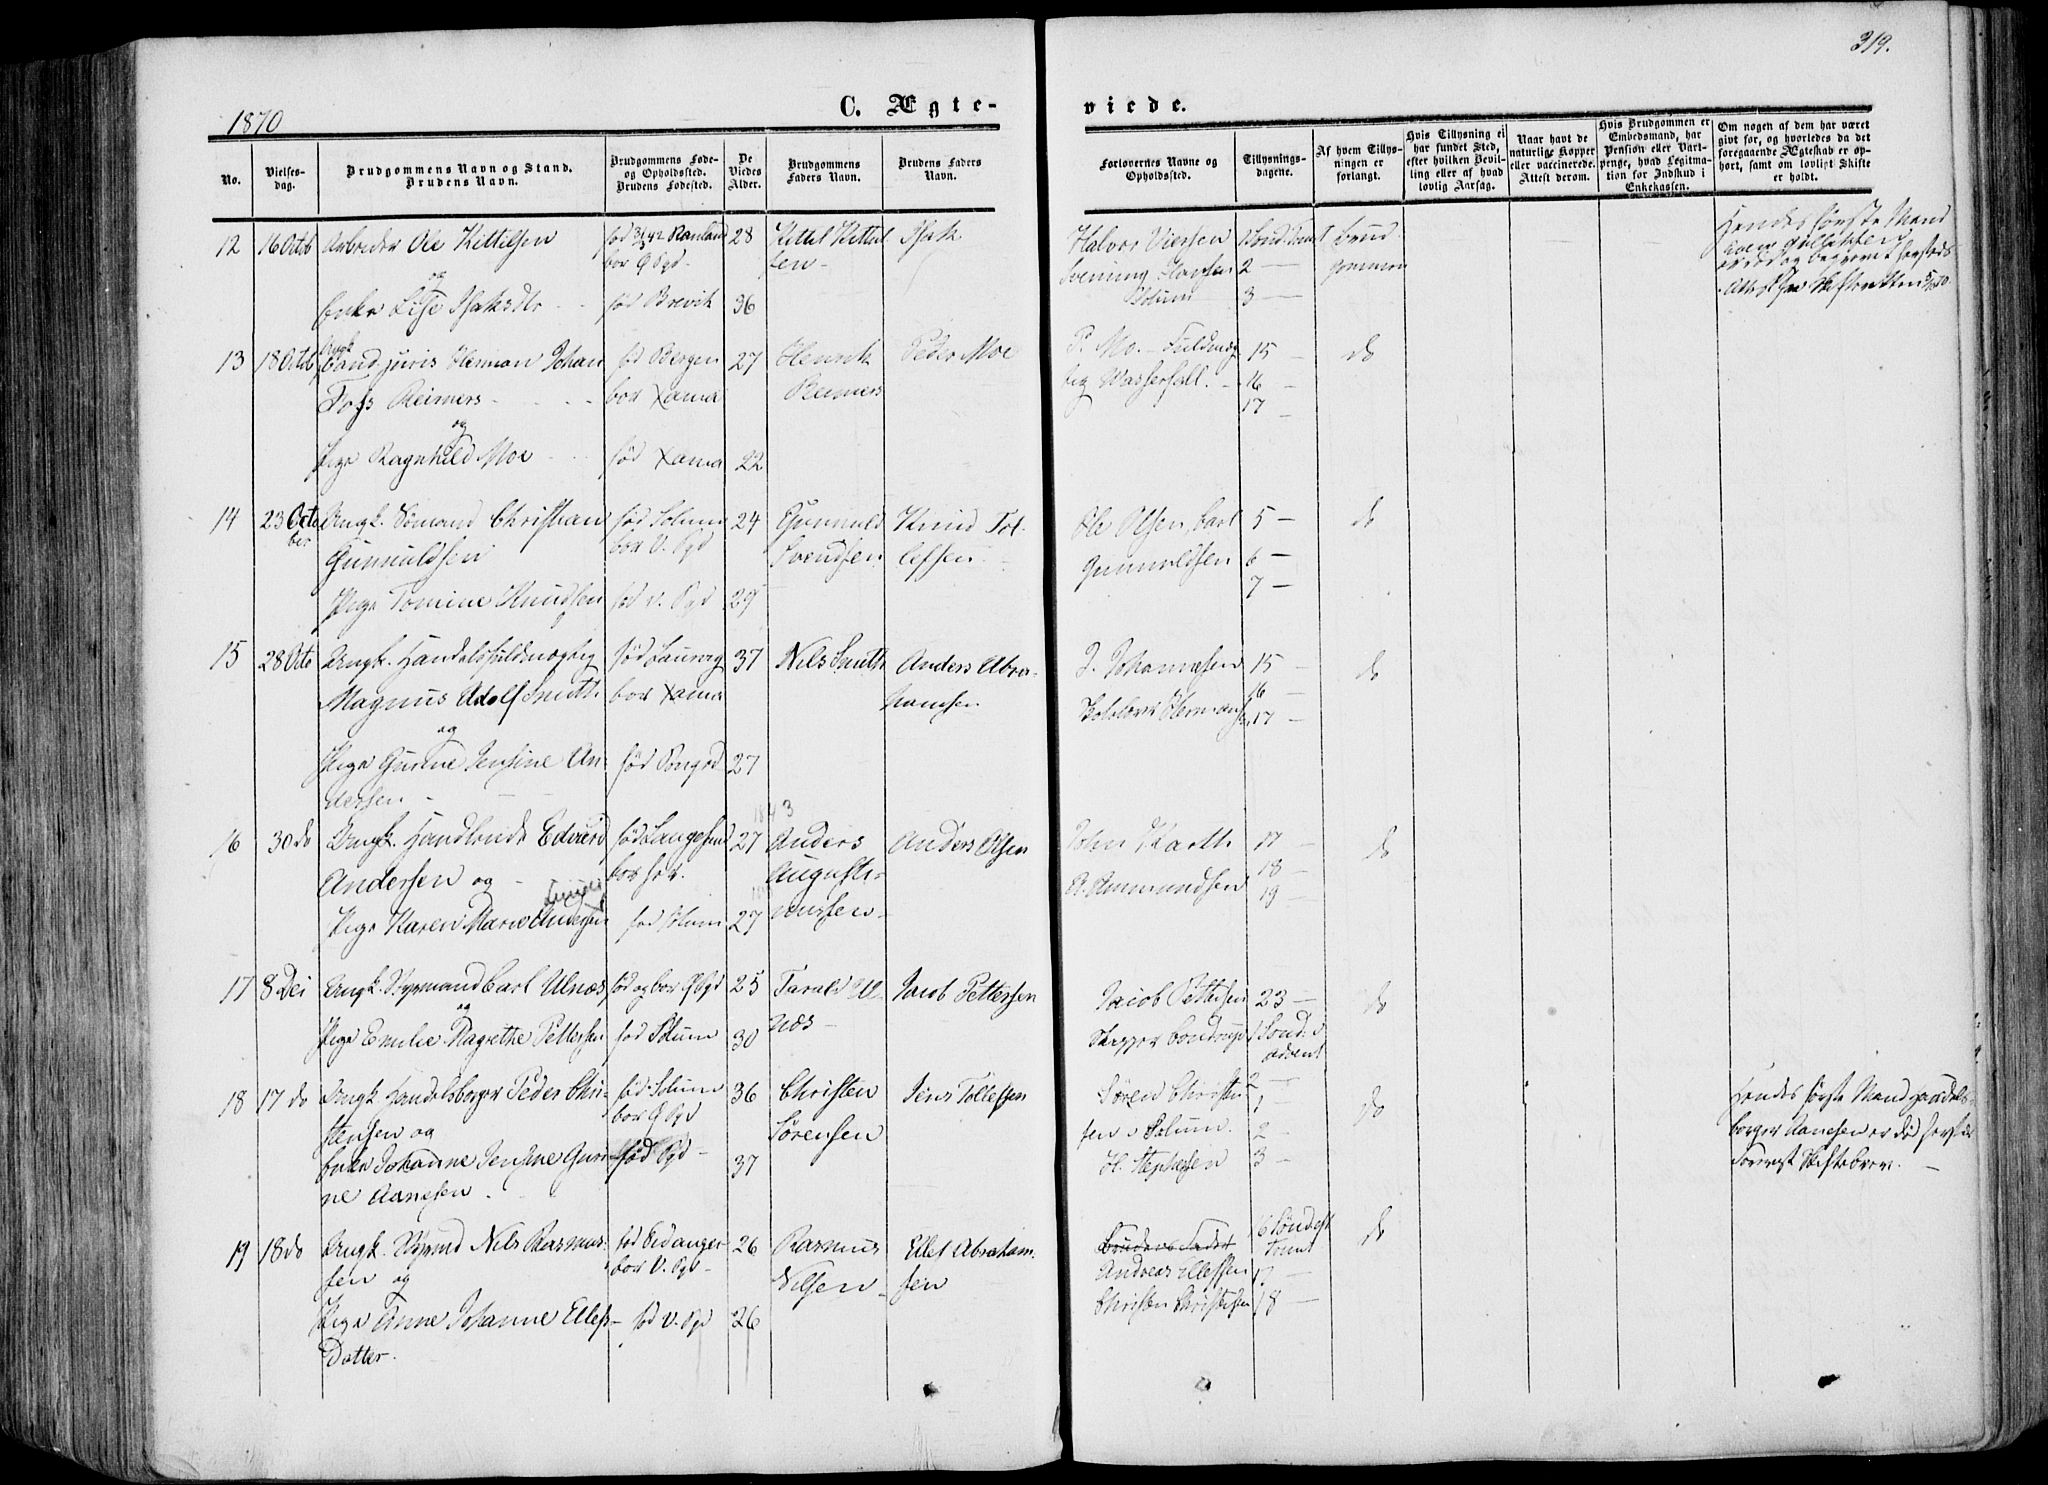 319.
1870
C. Ægte-
viede.
No.
Vielses-
dag.
Brudgommens Navn og Stand.
Brudens Navn.
Brudgommens Føde-
og Opholdssted.
Brudens Fødested.
De
Viedes
Alder.
Brudgommens
Faders Navn.
Brudens Faders
Navn.
Forlovernes Navne og
Opholdssted.
Tillysnings-
dagene.
Af hvem Tillys-
ningen er
forlangt.
Hvis Tillysning ei
har fundet Sted,
efter hvilken Bevil-
ling eller af hvad
lovlig Aarsag.
Naar havt de
naturlige Kopper
eller vaccinerede.
Attest derom.
Hvis Brudgommen er
Embedsmand, har
Pension eller Vart-
penge, hvad Legitima-
tion for Indskud i
Enkekassen.
Om nogen af dem har været
gift før, og hvorledes da det
foregaaende Ægteskab er op-
hørt, samt om lovligt Skifte
er holdt.
12 16 Octb Arbeider Ole Kittilsen
og
Enke Lise Isaksdtr
fød 3/4 42 Rauland
bor Ø Pgd -
fød Brevik
28
36
Kittil Kittil
sen -
Isak
Halvor Viersen
Svening Hansen
Solum
1 Sønd. Trint
2 —
3 —
Brud
gommen
Hendes første Mand
er død og begravet
Attest fra Skifteretten
13 18 Octb Cand juris Herman Johan
Foss Reimers
og
Pige Ragnhild Moe
fød Bergen
bor Xania
fød Xania
27
22
Henrik
Reimers
Peder Moe
P. Mo. - Fuldmæg
tig Wasserfall. -
15 —
16 —
17 —
do
14 23 Octo
ber
Ungk. Sömand Christian
Gunnuldsen
Pige Tomine Knudsen
fød Solum
bor V. Pgd
fød V. Pgd
24
29
Gunnuld
Svendsen
Knud Tol-
lefsen -
Ole Olsen, Carl
Gunnuldsen
5 —
6 —
7 —
do
15 28 Octo Ungk. Handelsfuldmægtig
Magnus Adolf Smith
og
Pige Gurine Jensine An-
dersen -
fød Laurvig
bor Xania
fød Porsgrd
37
27
Nils Smith
Anders Abra-
hamsen
J. Johannesen
Herman
sen
15 —
16 —
17 —
do
1843
16 30 do Ungk. Handlende Edvard
Andersen og -
Pige Karen Marie Andersen
fød Langesund
bor her.
fød Solum
27
27
Anders
Augusti-
nussen -
Anders Olsen
John Barth
B. Ammundsen
17 —
18 —
19 —
do
17 8 Dec Ungk. Styrmand Carl Ulnæs
og
Pige Emilie Magrethe Pettersen
fød og bor Ø Pgd
fød Solum
25
30
Tarald Ul-
næs -
Jacob Pettersen
Jacob Pettersen
Skipper
23 —
1 Sønd. i
Advent
2 —
do
18 17 do Ungk. Handelsborger Peder Chri-
stensen og
Enke Johanne Jensine Guri-
ne Aanesen
fød Solum
bor Ø Pgd
fød Pgd -
36
37
Christen
Sørensen
Jens Tollefsen
Søren Christen
sen - Solum.
H. Stephensen
1 —
2 —
3 —
do
Hendes første Mand Handels-
borger Aanesen er død herstæd
Forevist Skiftebrev. —
19 18 do Ungk. Styrmd Nils Rasmus-
sen og
Pige Anne Johanne Ellefs-
Datter.
fød Eidanger
bor V. Pgd -
fød V. Pgd
26
26
Rasmus
Nilsen -
Ellef Abraham-
sen
Brudens Fader
Andreas Ellefsen
Christen Christensen
16 Søndest
Trint
17 —
18 —
do